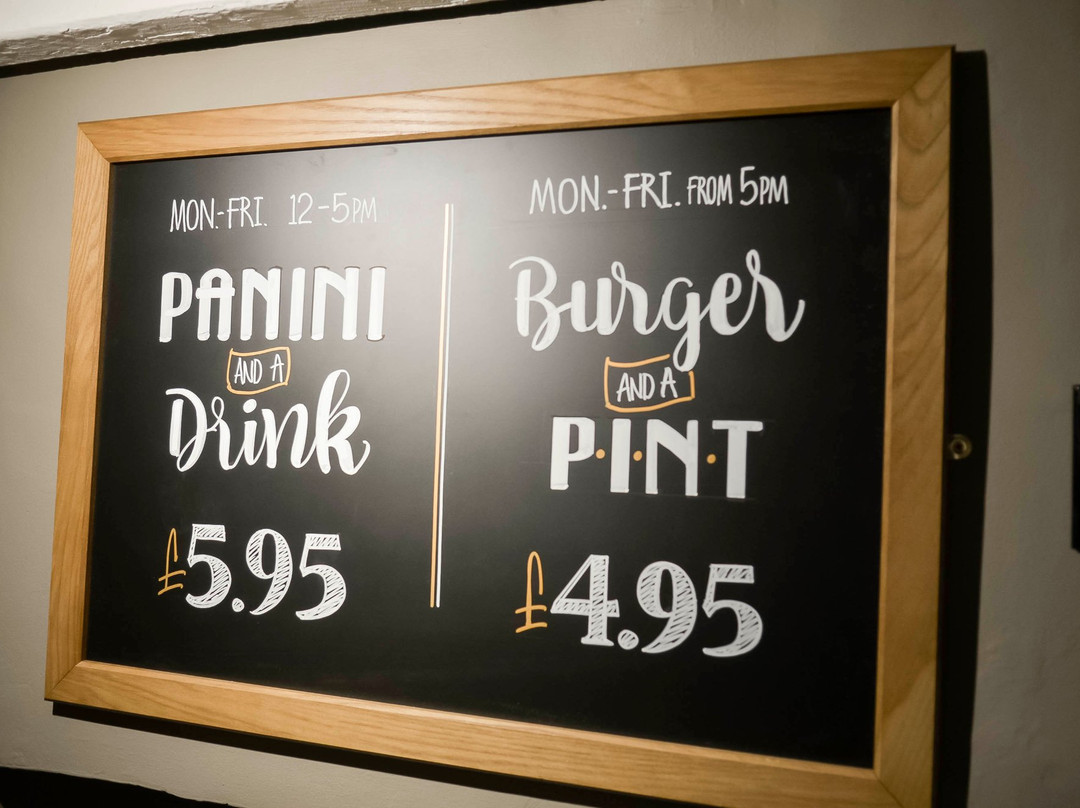 MON.-FRI. 12-5PM
PANINI
AND A
Drink
£5.95
MON.-FRI. FROM 5PM
Burger
AND A
P·I·N·T
£4.95